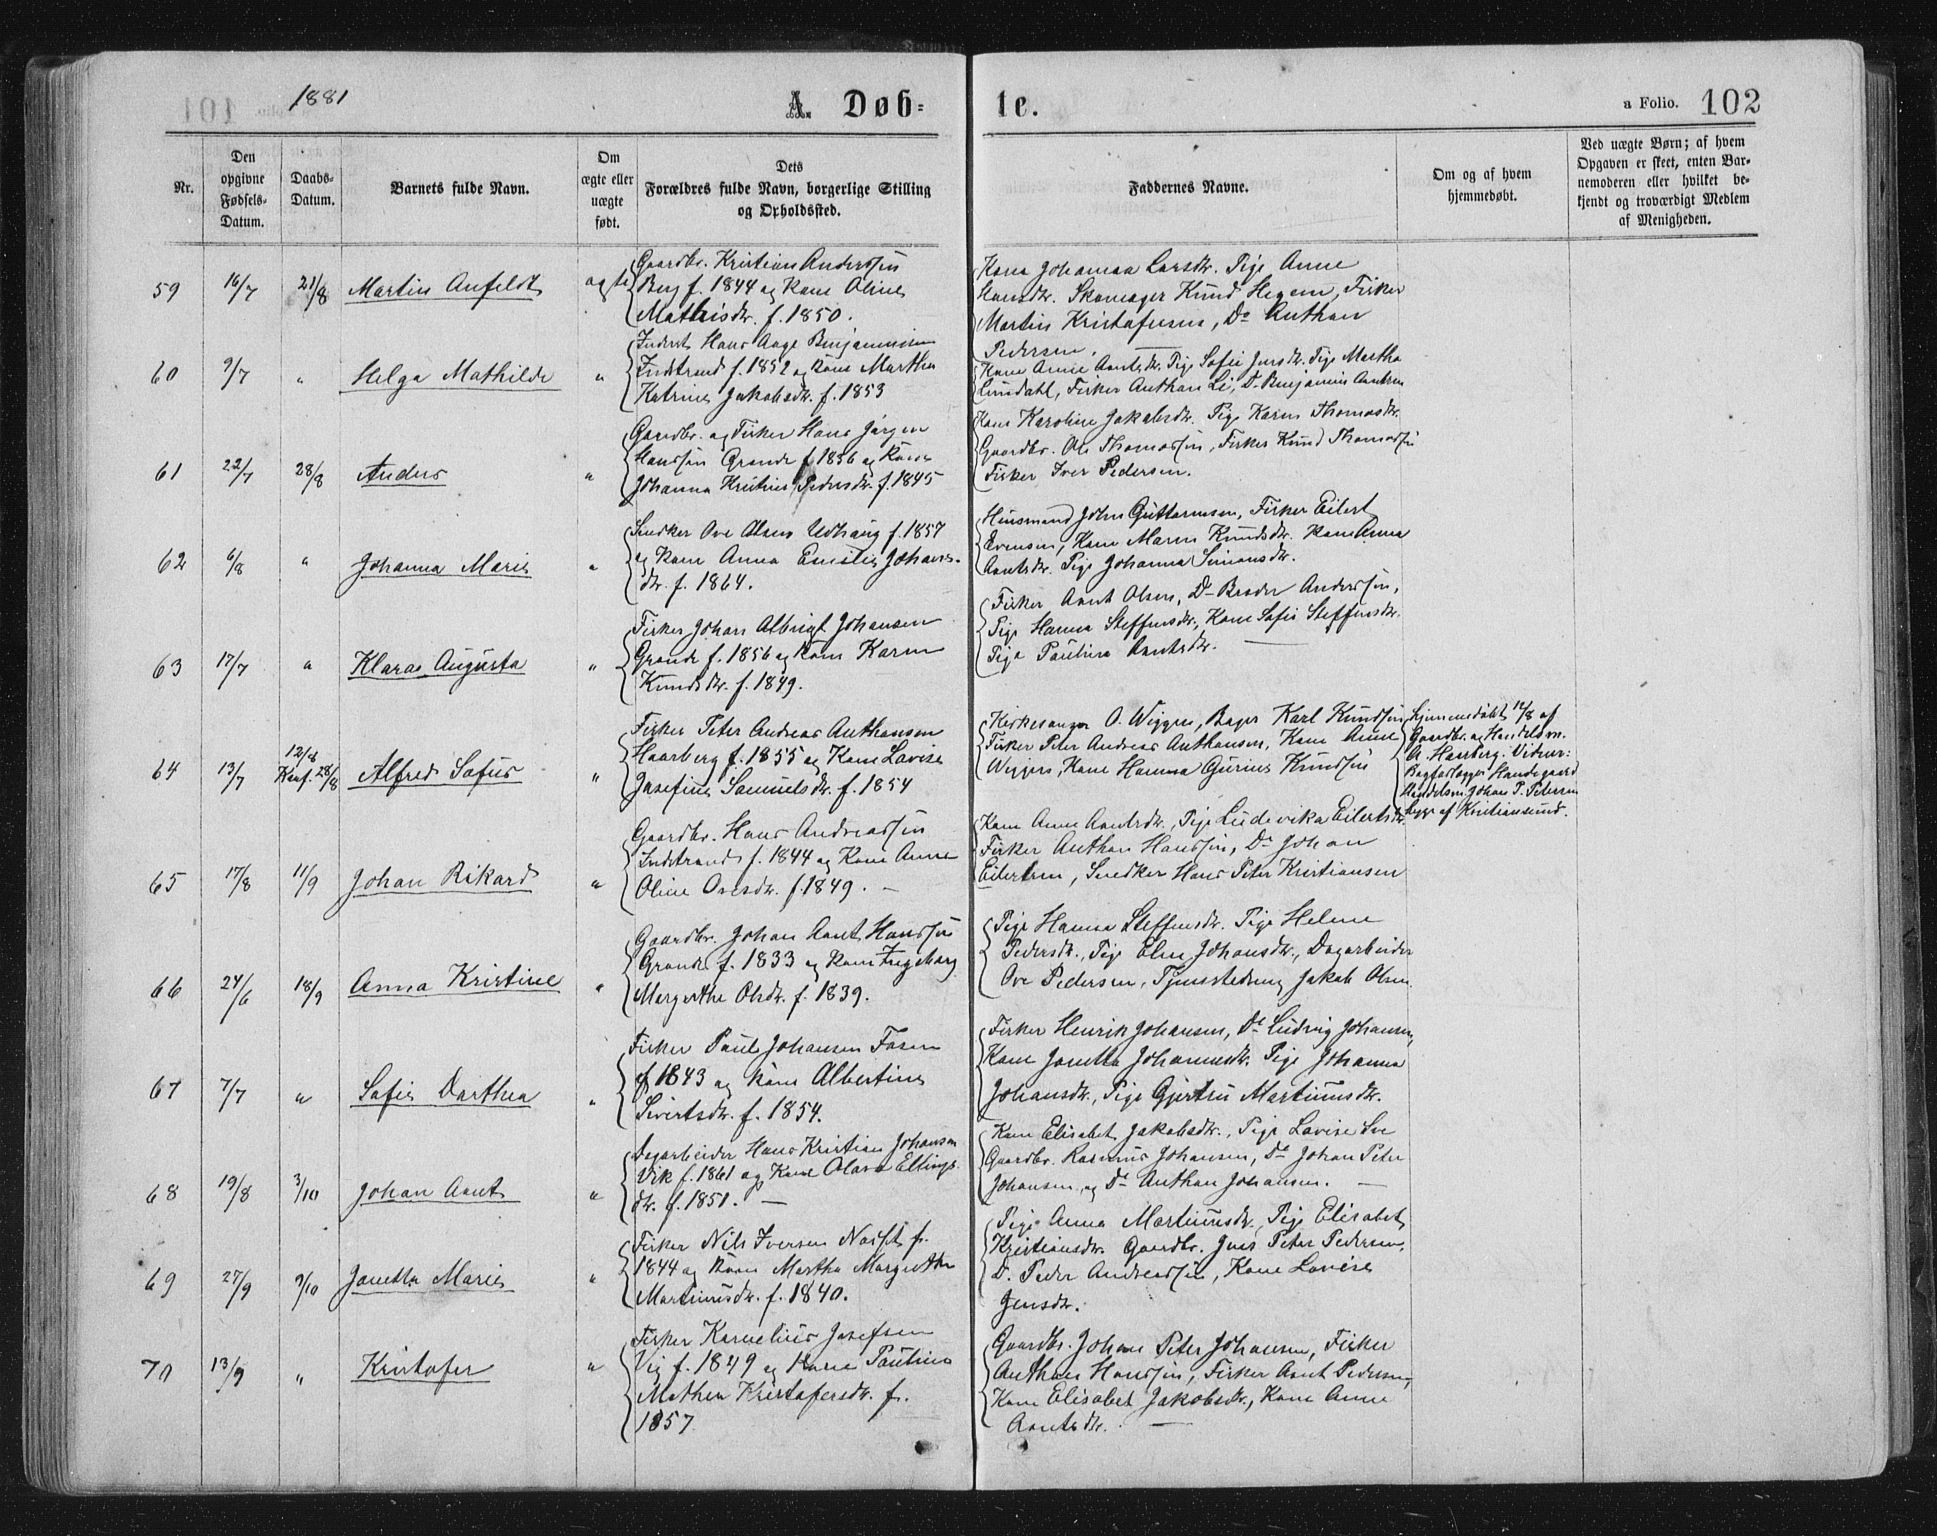 1881
A. Døb-
te.
a Folio. 102
Nr.
Den opgivne Fødsels-Datum.
Daabs-Datum.
Barnets fulde Navn.
Om ægte eller uægte født.
Dets Forældres fulde Navn, borgerlige Stilling og Opholdssted.
Faddernes Navne.
Om og af hvem hjemmedøbt.
Ved uægte Børn; af hvem Opgaven er skeet, enten Barnemoderen eller hvilket bekjendt og troværdigt Medlem af Menigheden.
59 16/7 21/8 Martin Anfeldt ægte
Gaardbr. Kristian Anderssen
Berg f. 1844 og Kone Oline
Mathisdr. f. 1850.
Kone Johanna Larsdr. Pige Anne
Hansdr. Skomager Knud Hegem, Fisker
Martin Kristofersen, Do Anthon
Pedersen.
60 9/7 " Helga Mathilde "
Inderst Hans Aage Benjaminsen
Indstrand f. 1852 og Kone Martha
Katrine Jakobsdr. f. 1853
Kone Anne Aantsdr. Pige Sofie Jensdr. Pige Martha
Lundahl, Fisker Anthon Li, Do Benjamin
61 22/7 28/8 Anders "
Gaardbr. og Fisker Hans Jørgen
Hanssen Grande f. 1856 og Kone
Johanna Kristine Pedersdr. f. 1845
Kone Karoline Jakobsdr. Pige Karen Thomasdr.
Gaardbr. Ole Thomassen, Fisker Knud Thomassen
Fisker Iver Pedersen.
62 6/8 " Johanna Marie "
Snedker Ove Olsen Udhaug f. 1857
og Kone Anna Emilie Johans-
dr. f. 1864.
Husmand John Guttormsen, Fisker Eilert
Evensen, Kone Maren Knudsdr. Kone Anna
Aantsdr. Pige Johanna Simonsdr.
63 17/7 " Klara Augusta "
Fisker Johan Albrigt Johansen
Grande f. 1856 og Kone Karen
Knudsdr. f. 1849.
Fisker Aant Olsen, Do Anderssen,
Pige Hanna Steffensdr., Kone Sofie Steffensdr.
Pige Pauline Aantsdr.
64 13/7 12/8 Konf. 28/8 Alfred Sofus "
Fisker Peter Andreas Anthonsen
Haarberg f. 1855 og Kone Lovise
Josefine Samuelsdr. f. 1854
Kirkesanger O. Wiggen, Bager Karl Knudsen
Fisker Peter Andreas Anthonsen, Kone Anne
Wiggen, Kone Hanna Gurine Knudsen
Hjemmedøbt 12/8 af
Gaardbr. og Handelsm.
A. Haarberg. Vidner:
Handelsm. Johan P. Petersen
begge af Kristiansund.
65 17/8 11/9 Johan Rikard "
Gaardbr. Hans Andreassen
Indstrand f. 1844 og Kone Anne
Oline Ovesdr. f. 1849.
Kone Anne Aantsdr., Pige Ludevika Eilertsdr.
Fisker Anthon Hanssen, Do Johan
Eilertsen, Snedker Hans Peter Kristiansen
66 24/6 18/9 Anna Kristine "
Gaardbr. Johan Aant Hanssen
Grande f. 1833 og Kone Ingeborg
Margrethe Olsdr. f. 1839.
Pige Hanna Steffensdr. Pige Helene
Pedersdr., Pige Elen Johansdr., Dagarbeider
Ove Pedersen, Tjenestedreng Jakob Olsen.
67 7/7 " Sofie Dorthea "
Fisker Paul Johansen Fosen
f. 1843 og Kone Albertine
Sivertsdr. f. 1854.
Fisker Henrik Johansen, Do Ludvig Johansen,
Kone Janetta Johannesdr. Pige Johanna
Johansdr., Pige Gjertru Martinusdr.
68 19/8 3/10 Johan Aant "
Dagarbeider Hans Kristian Johansen
Vik f. 1861 og Kone Olava Ellings-
dr. f. 1851.
Kone Elisabet Jakobsdr., Pige Lovise
Gaardbr. Rasmus Johansen, Do Johan Peter
Johansen og Do Anthon Johansen.
69 27/9 9/10 Janetta Marie "
Fisker Nils Iversen f.
1844 og Kone Martha Margrethe
Martinusdr. f. 1840.
Pige Anna Martinusdr., Pige Elisabet
Kristiansdr. Gaardbr. Jens Peter Pedersen,
D. Peder Andreassen, Kone Lovise
Jensdr.
70 13/9 " Kristofer "
Fisker Kornelius Josefsen
Vig f. 1849 og Kone Pauline
Mathea Kristofersdr. f.
1857
Gaardbr. Johan Peter Johansen, Fisker
Anthon Hanssen, Fisker Aant Pedersen,
Kone Elisabet Jakobsdr., Kone Anne
Aantsdr.